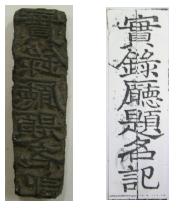 實錄廳題名記
實錄廳題名記